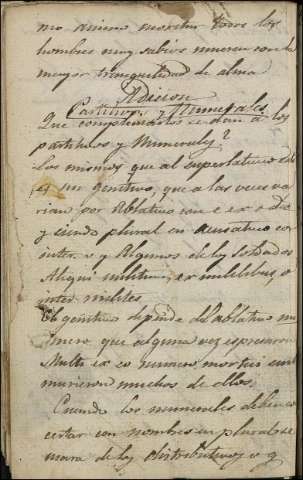 mo animo moritur todos los
hombres muy sabios mueren con la
mayor tranquilidad de alma
Adicion
Partitivos y Numerales
Que complementos se dan a los
partitivos y Numerales?
Los mismos que al superlativo
q. un genitivo, que a las veces va
rian por Ablativo con e ex o de
y siendo plural en acusativo con
inter. v g Algunos de los soldados
Aliqui militum, ex militibus, o
inter milites
El genitivo depende del ablativo nu
mero que alguna vez espresaron
Multi ex eo numero mortui sunt
murieron muchos de ellos.
Cuando los numerales deben con
certar con nombres en plural se
usara de los distributivos v g